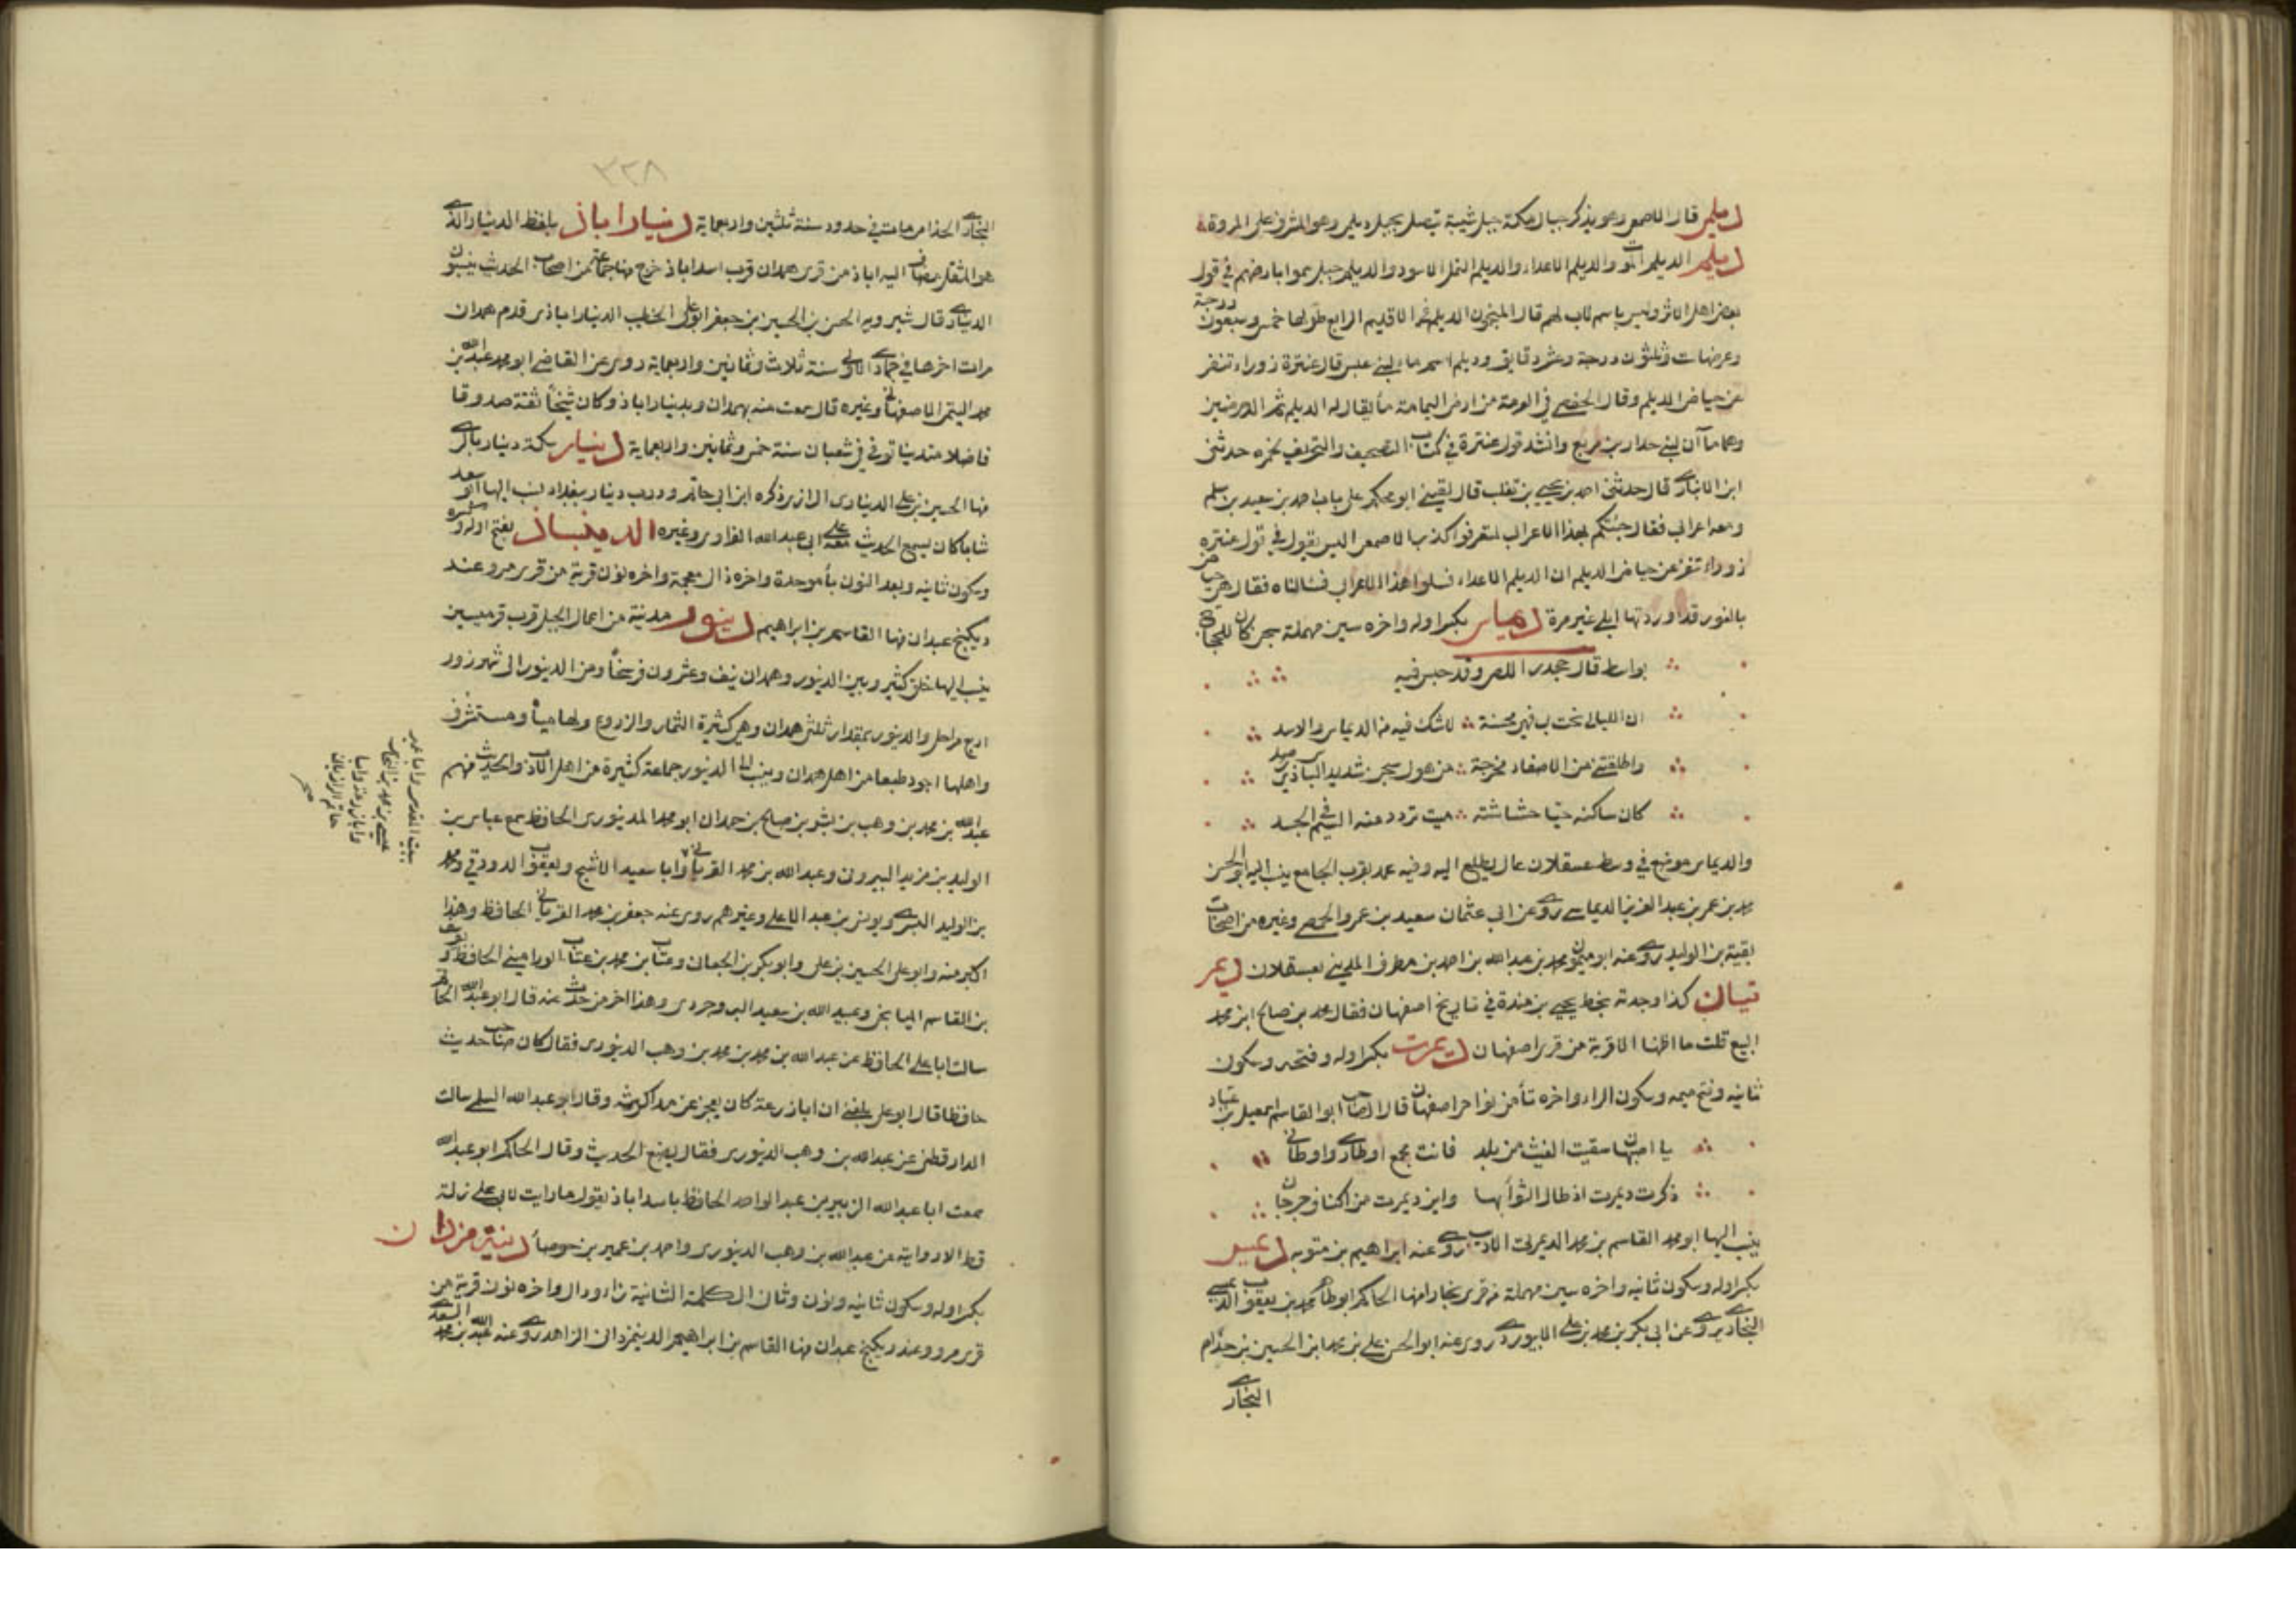 ديلمي قال الاصمعي وهو يذكر جبال مكة جبل شيبة يتصل بجبل ديلمي وهو المشرف على المروة
ديلم الديلم الموت والديلم الاعداء والديلم النمل الاسود والديلم جيل سموا بارضهم في قول
بعض اهل الاثر وليس باسم لاب لهم قال المنجمون الديلم في الاقليم الرابع طولها خمس وسبعون درجة
وعرضها ست وثلثون درجة وعشر دقايق وديلم اسم ماء لبني عبس قال عنترة زوراء تنفر
عن حياض الديلم وقال الحفصي في العرمة من ارض اليمامة ماء يقال له الديلم ثم الدحرضين
وهما ماآن لبني حدار بن قريع وانشد قول عنترة في كتاب التصحيف والتحريف لحمزة حدثني
ابن الانباري قال حدثني احمد بن يحيي بن تغلب قال لقيني ابو محكم على باب احمد بن سعيد بن سلم
ومعه اعرابي فقال جئتكم بهذا الاعرابي لتعرفوا كذب الاصمعي اليس يقول في قول عنتره
زوراء تنفر عن حياض الديلم ان الديلم الاعداء فسلوا هذا الاعرابي فسالناه فقال هي حياض
بالغور قد اوردتها ابلي غير مرة ديماس بكسر اوله واخره سين مهملة سجن كان للحجاج
بواسط قال جحدر اللص وقد حبس فيه
ان الليالي نحت بي فهي محسنة لا شك فيه من الديماس والاسد
واطلقتني من الاصفاد مخرجة من هول سجن شديد الباس ذي رصد
كان ساكنه حيا حشاشته ميت تردد منه السم في الجسد
والديماس موضع في وسط عسقلان عال يطلع اليه وفيه عمد بقرب الجامع ينسب اليه ابو الحسن
محمد بن عمر بن عبد العزيز الديماسي روى عن ابي عثمان سعيد بن عمرو الحمصي وغيره من اصحاب
بقية بن الوليد روى عنه ابو ميمون محمد بن عبد الله بن احمد بن مطرف المديني بعسقلان ديمر
تيان كذا وجدته بخط يحيي بن مندة في تاريخ اصفهان فقال محمد بن صالح ابن محمد
البيع قلت ما اظنها الا قرية من قرى اصفهان ديمرت بكسر اوله وفتحه وسكون
ثانيه وفتح ميمه وسكون الراء واخره تاء من نواحي اصفهان قال الصاحب ابو القاسم اسمعيل بن عباد
يا اصبهان سقيت الغيث من بلد فانت مجمع اوطاري واوطاني
ذكرت ديمرت اذ طال الثواء بها واين ديمرت من اكناف جرجان
ينسب اليها ابو محمد القاسم بن محمد الديمرتي الاديب روى عنه ابراهيم بن متويه ديمس
بكسر اوله وسكون ثانيه واخره سين مهملة من قرى بخارا منها الحاكم ابو طاهر محمد بن يعقوب الديمسي
البخاري روى عن ابي بكر بن محمد بن علي الابيوردي روى عنه ابو الحسن علي بن محمد ابن الحسين بن حذام
البخاري
٣٢٨
البخاري الحذامي مات في حدود سنة ثلثين واربعماية ديناراباذ بلفظ الدينار الذي
هو المثقل مضاف اليه اباذ من قرى همدان قرب اسداباذ خرج منها جماعة من اصحاب الحديث ينسبون
الديناري قال شيرويه الحسن بن الحسين بن جعفر ابو علي الخطيب الديناراباذي قدم همدان
مرات اخرها في جمادى الاولى سنة ثلاث وثمانين واربعماية روى عن القاضي ابو محمد عبد الله بن
محمد التيمي الاصفهاني وغيره قال سمعت منه بهمدان وبديناراباذ وكان شيخاً ثقة صدوقا
فاضلا متدينا توفي في شعبان سنة خمس وثمانين واربعماية دينار سكة دينار بالري
منها الحسين بن علي الديناري الرازي ذكره ابن ابي حاتم ودرب دينار ببغداد نسب اليها ابو سعد
شابا كان يسمع الحديث معنا على ابي عبد الله الفراوي وغيره الديدنباذ بفتح اوله
وسكون ثانيه وبعد النون باء موحدة واخره ذال معجمة واخره نون قرية من قرى مرو عند
ديكنج عبدان منها القاسم بن ابراهيم دينور مدينة من اعمال الجبل قرب قرميسين
ينسب اليها خلق كثير وبين الدينور وهمدان نيف وعشرون فرسخاً ومن الدينور الى شهرزور
اربع مراحل والدينور بمقدار ثلثي همدان وهي كثيرة الثمار والزروع ولها مياه ومستشرف
واهلها اجود طبعا من اهل همدان وينسب الى الدينور جماعة كثيرة من اهل الادب والحديث منهم
عبد الله بن محمد بن وهب بن بشر بن صالح بن حمدان ابو محمد الدينوري الحافظ سمع عباس بن
الوليد بن مزيد البيروتي وعبد الله بن محمد الفريابي وابا سعيد الاشج ويعقوب الدورقي ومحمد
بن الوليد البسري ويونس بن عبد الاعلى وغيرهم روى عنه جعفر بن محمد الفريابي الحافظ وهذا
اكبر منه وابو علي الحسين بن علي وابو بكر بن الجعابي وعتاب بن محمد بن عتاب الوراميني الحافظ ويوسف
بن القاسم الميانجي وعبيد الله بن سعيد البروجردي وهذا اخر من حدث عنه قال ابو عبد الله الحاكم
سالت ابا علي الحافظ عن عبد الله بن محمد بن محمد بن وهب الدينوري فقال كان صاحب حديث
حافظا قال ابو علي بلغني ان ابا زرعة كان يعجز عن مذاكرته وقال ابو عبد الله السلمي سالت
الدارقطني عن عبد الله بن وهب الدينوري فقال يضع الحديث وقال الحاكم ابو عبد الله
سمعت ابا عبد الله الزبير بن عبد الواحد الحافظ باسداباذ يقول ما رايت لابي علي زلة
قط الا روايته عن عبد الله بن وهب الدينوري واحمد بن عمير بن جوصا دينة مزدان
بكسر اوله وسكون ثانيه ونون وثاني الكلمة الثانية زاء ودال واخره نون قرية من
قرى مرو وعند ديكنج عبدان منها القاسم بن ابراهيم الدينمزداني الزاهد روى عنه عبد الله بن محمد السعدي
ببيت المقدس وابا عمير
عيسى بن محمد بن النحاس
وابا زرعة وابا
حاتم الرازيان
صح